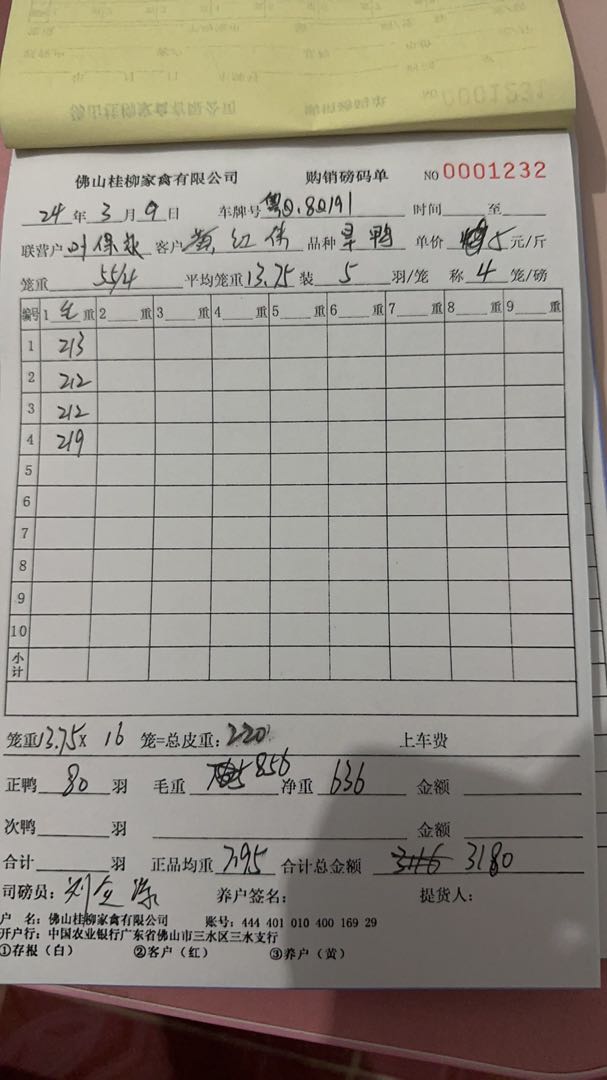 NO 0001231
佛山桂柳家禽有限公司 购销磅码单 NO 0001232
24年3月9日 车牌号 粤Q.8Q191 时间 至
联营户 叶保 客户 黄红伟 品种 旱鸭 单价 5 元/斤
笼重 55/4 平均笼重 13.75 装 5 羽/笼 称 4 笼/磅
编号 1 毛 重 2 重 3 重 4 重 5 重 6 重 7 重 8 重 9 重
1 213
2 212
3 212
4 219
5
6
7
8
9
10
小计
笼重 13.75 x 16 笼=总皮重: 220 上车费
正鸭 80 羽 毛重 856 净重 636 金额
次鸭 羽 金额
合计 羽 正品均重 7.95 合计总金额 3116 3180
司磅员: 刘 养户签名: 提货人:
户 名: 佛山桂柳家禽有限公司 账号: 444 401 010 400 169 29
开户行: 中国农业银行广东省佛山市三水区三水支行
①存根（白） ②客户（红） ③养户（黄）